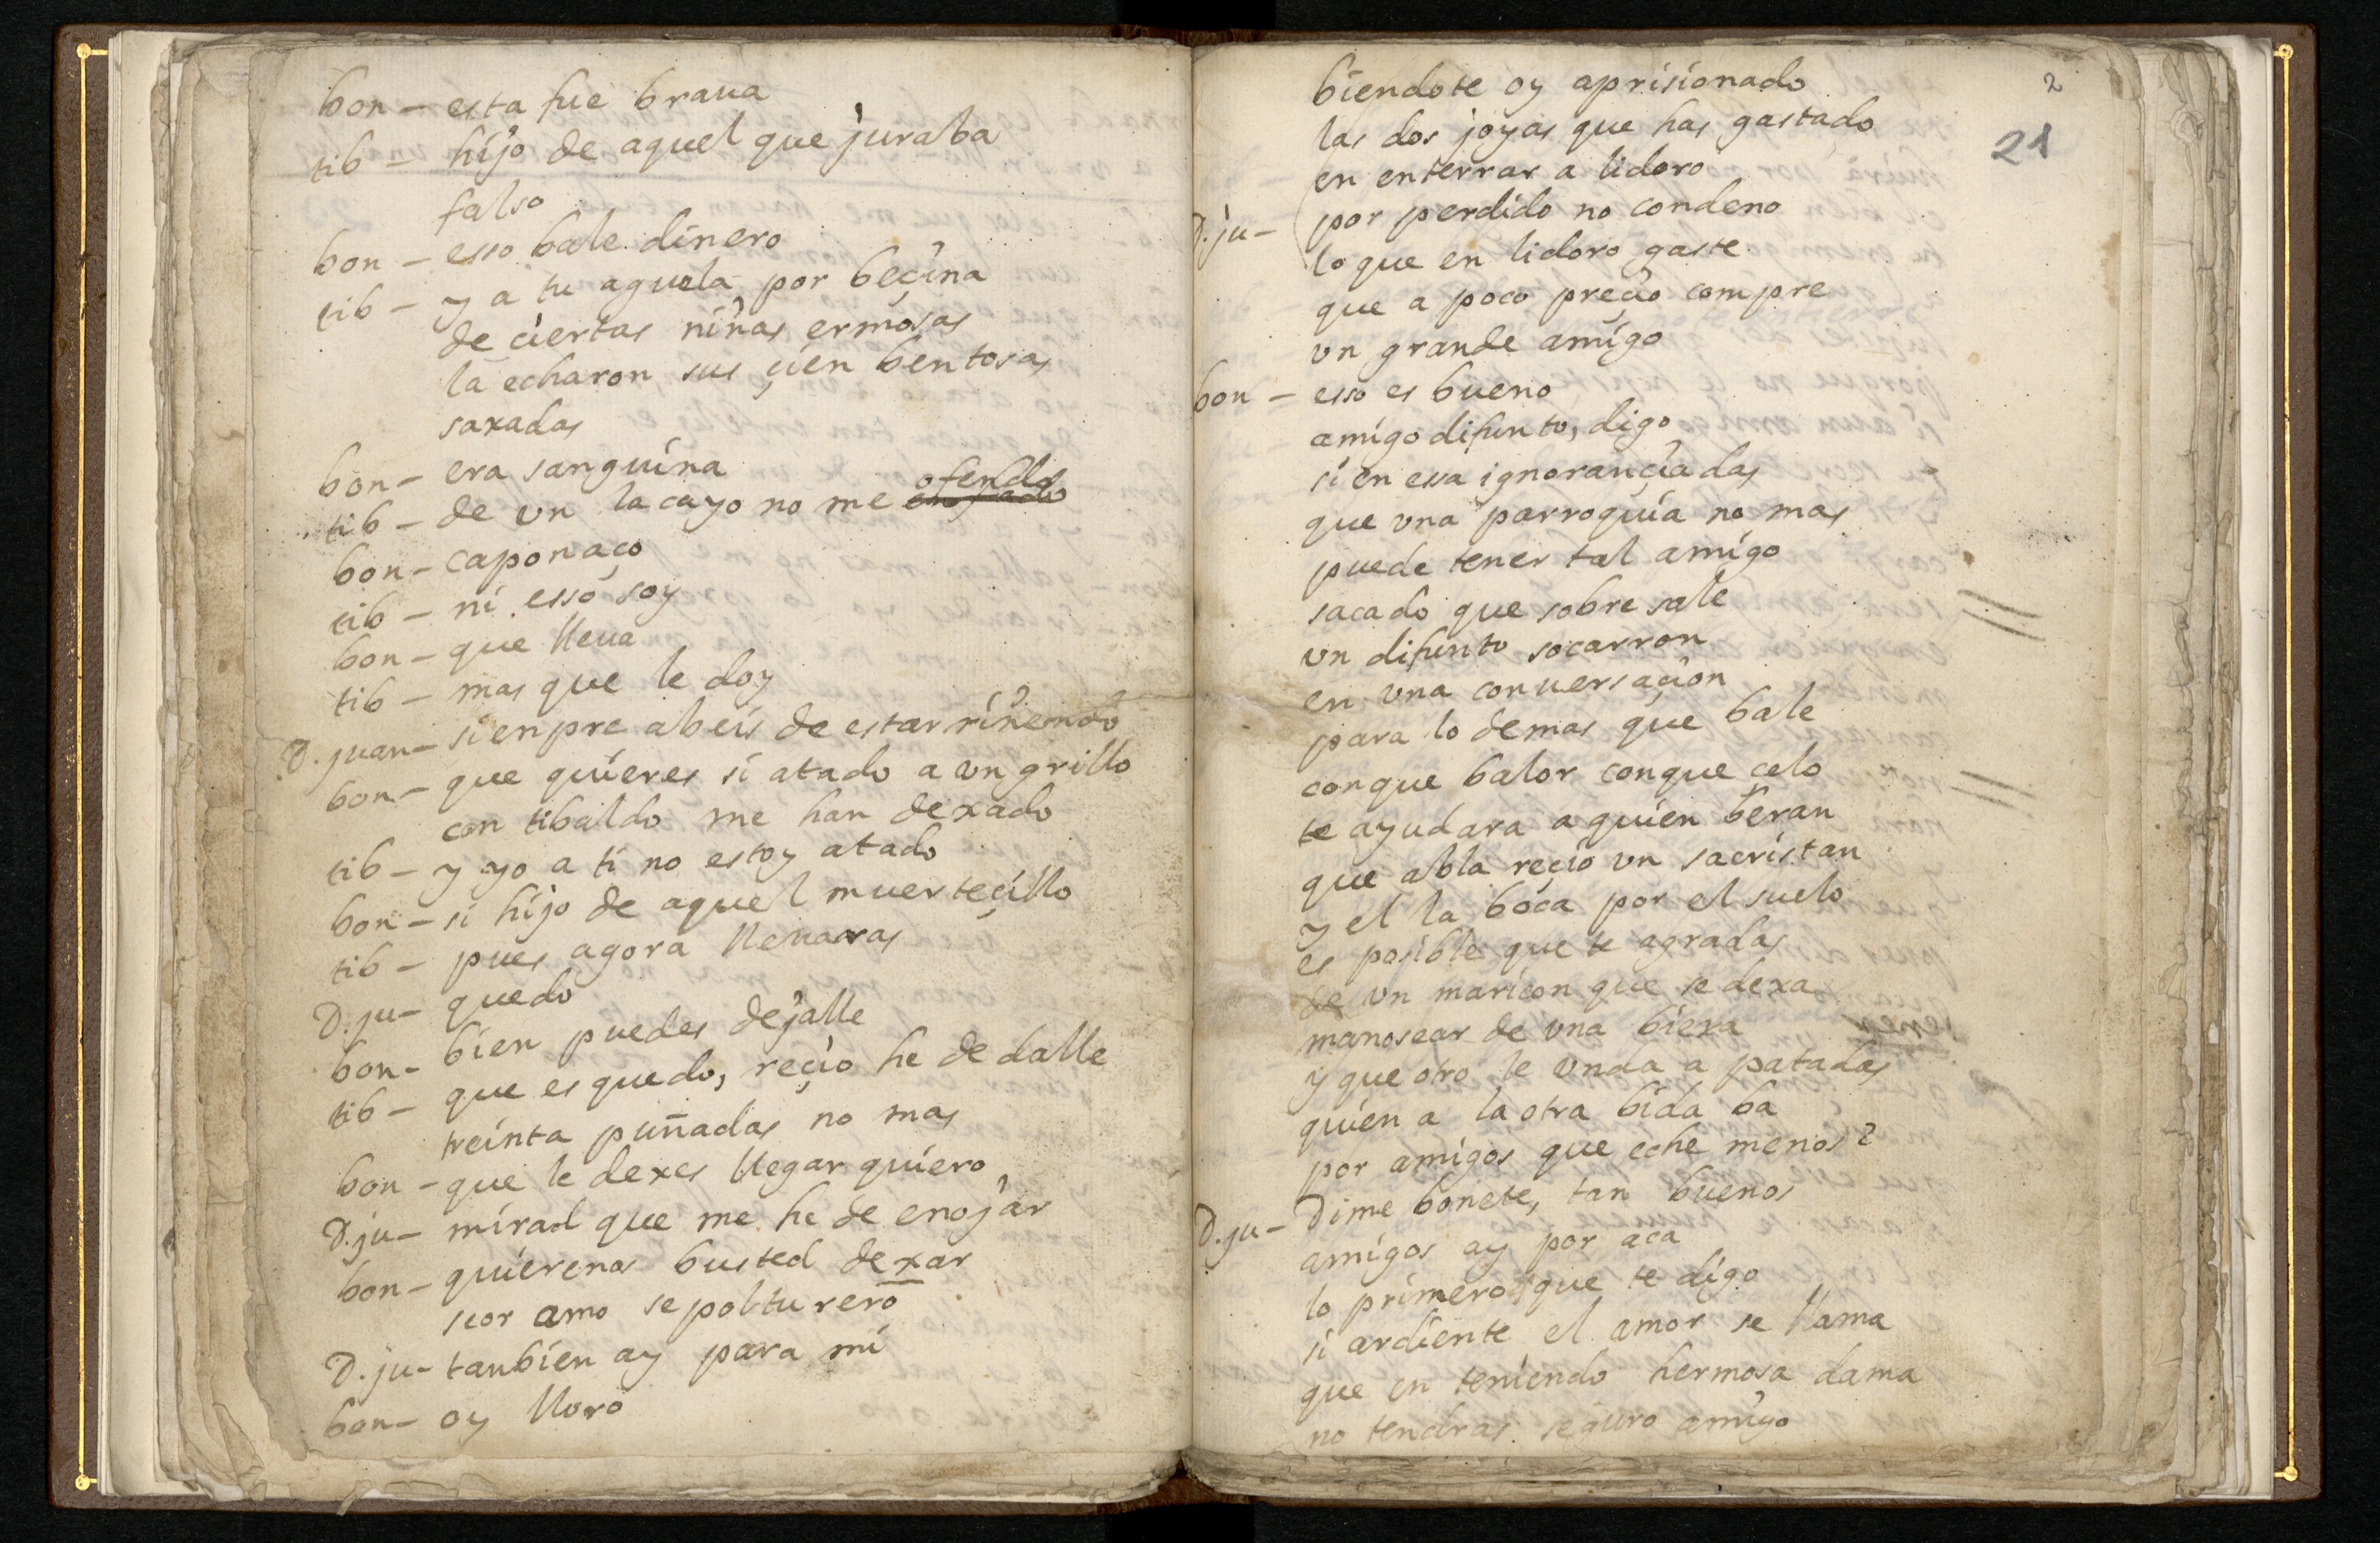 bon – esta fue braua
tib – hijo de aquel que juraba
falso
bon – esso bale dinero
tib – y a tu aguela por beçina
de ciertas niñas ermosas
la echaron sus çien bentosas
saxadas
bon – era sanguina
tib – de vn lacayo no me ofendo
bon – caponaço
tib – ni esso soy
bon – que lleua
tib – mas que le doy
D. juan – sienpre abeis de estar riñendo
bon – que quieres si atado a vn grillo
con tibaldo me han dexado
tib – y yo a ti no estoy atado
bon – si hijo de aquel muerteçillo
tib – pues agora lleuaras
D. ju – quedo
bon – bien puedes dejalle
tib – que es quedo, reçio he de dalle
treinta puñadas no mas
bon – que le dexes llegar quiero
D. ju – mirad que me he de enojar
bon – quierenos busted dexar
seor amo sepolturero
D. ju – tanbien ay para mi
bon – oy lloro
2
21
biendote oy aprisionado
las dos joyas que has gastado
en enterrar a lidoro
D. ju – por perdido no condeno
lo que en lidoro gaste
que a poco preçio compre
vn grande amigo
bon – esso es bueno
amigo difunto, digo
si en essa ignorançia das
que vna parroquia no mas
puede tener tal amigo
sacado que sobre sale
vn difunto socarron
en vna conuersaçion
para lo demas que bale
con que balor con que celo
te ayudara a quien beran
que abla reçio vn sacristan
y el la boca por el suelo
es posible que te agradas
de vn maricon que se dexa
manosear de vna biexa
y que otro le vnda a patadas
quien a la otra bida ba
por amigos que eche menos?
D. ju – Dime bonete, tan buenos
amigos ay por aca
lo primero que te digo
si ardiente el amor se llama
que en teniendo hermosa dama
no tendras seguro amigo